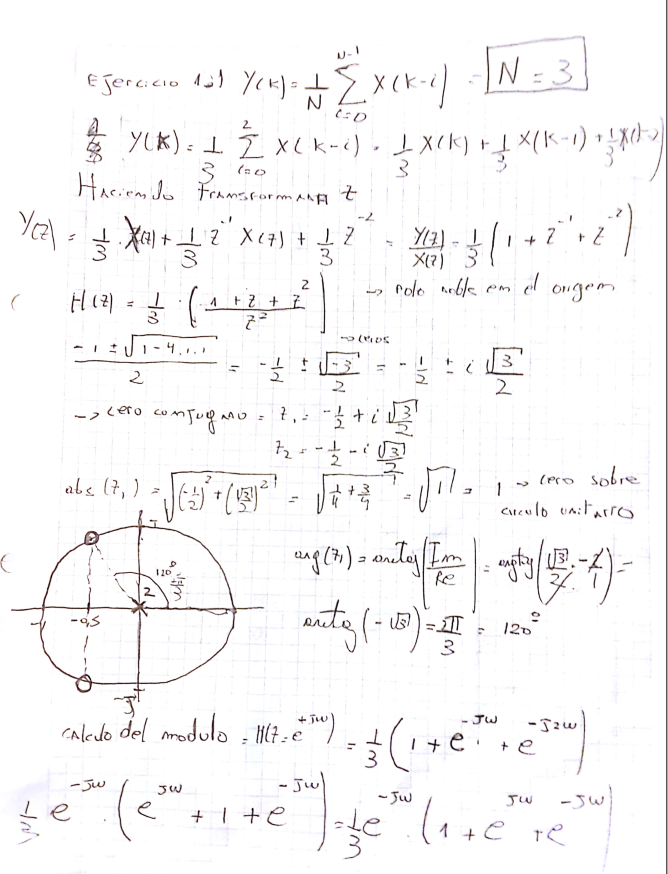 Ejercicio 1.1) Y(k) = 1/N ∑_{i=0}^{N-1} X(k-i) = N = 3
Y(k) = 1/3 ∑_{i=0}^{2} X(k-i) = 1/3 X(k) + 1/3 X(k-1) + 1/3 X(k-2)
Haciendo transformada z
Y(z) = 1/3 . X(z) + 1/3 z^{-1} X(z) + 1/3 z^{-2} = Y(z)/X(z) = 1/3 (1 + z^{-1} + z^{-2})
H(z) = 1/3 . (1 + z + z^2 / z^2) → polo doble en el origen
-1 ± √(1 - 4.1.1) / 2 = -1/2 ± √-3 / 2 → ceros = -1/2 ± i √3/2
-> cero conjugado = z_1 = -1/2 + i √3/2
z_2 = -1/2 - i √3/2
abs (z_1) = √((-1/2)^2 + (√3/2)^2) = √(1/4 + 3/4) = √1 = 1 → cero sobre
circulo unitario
J
arg(z_1) = arctg(Im/Re) = arctg(√3/2 . -2/1) =
120° 2π/3
2
-1 -0,5
arctg(-√3) = 2π/3 = 120°
-J
calculo del modulo = H(z = e^{+jw}) = 1/3 (1 + e^{-jw} + e^{-j2w})
1/3 e^{-jw} . (e^{jw} + 1 + e^{-jw}) = 1/3 e^{-jw} . (1 + e^{jw} + e^{-jw})